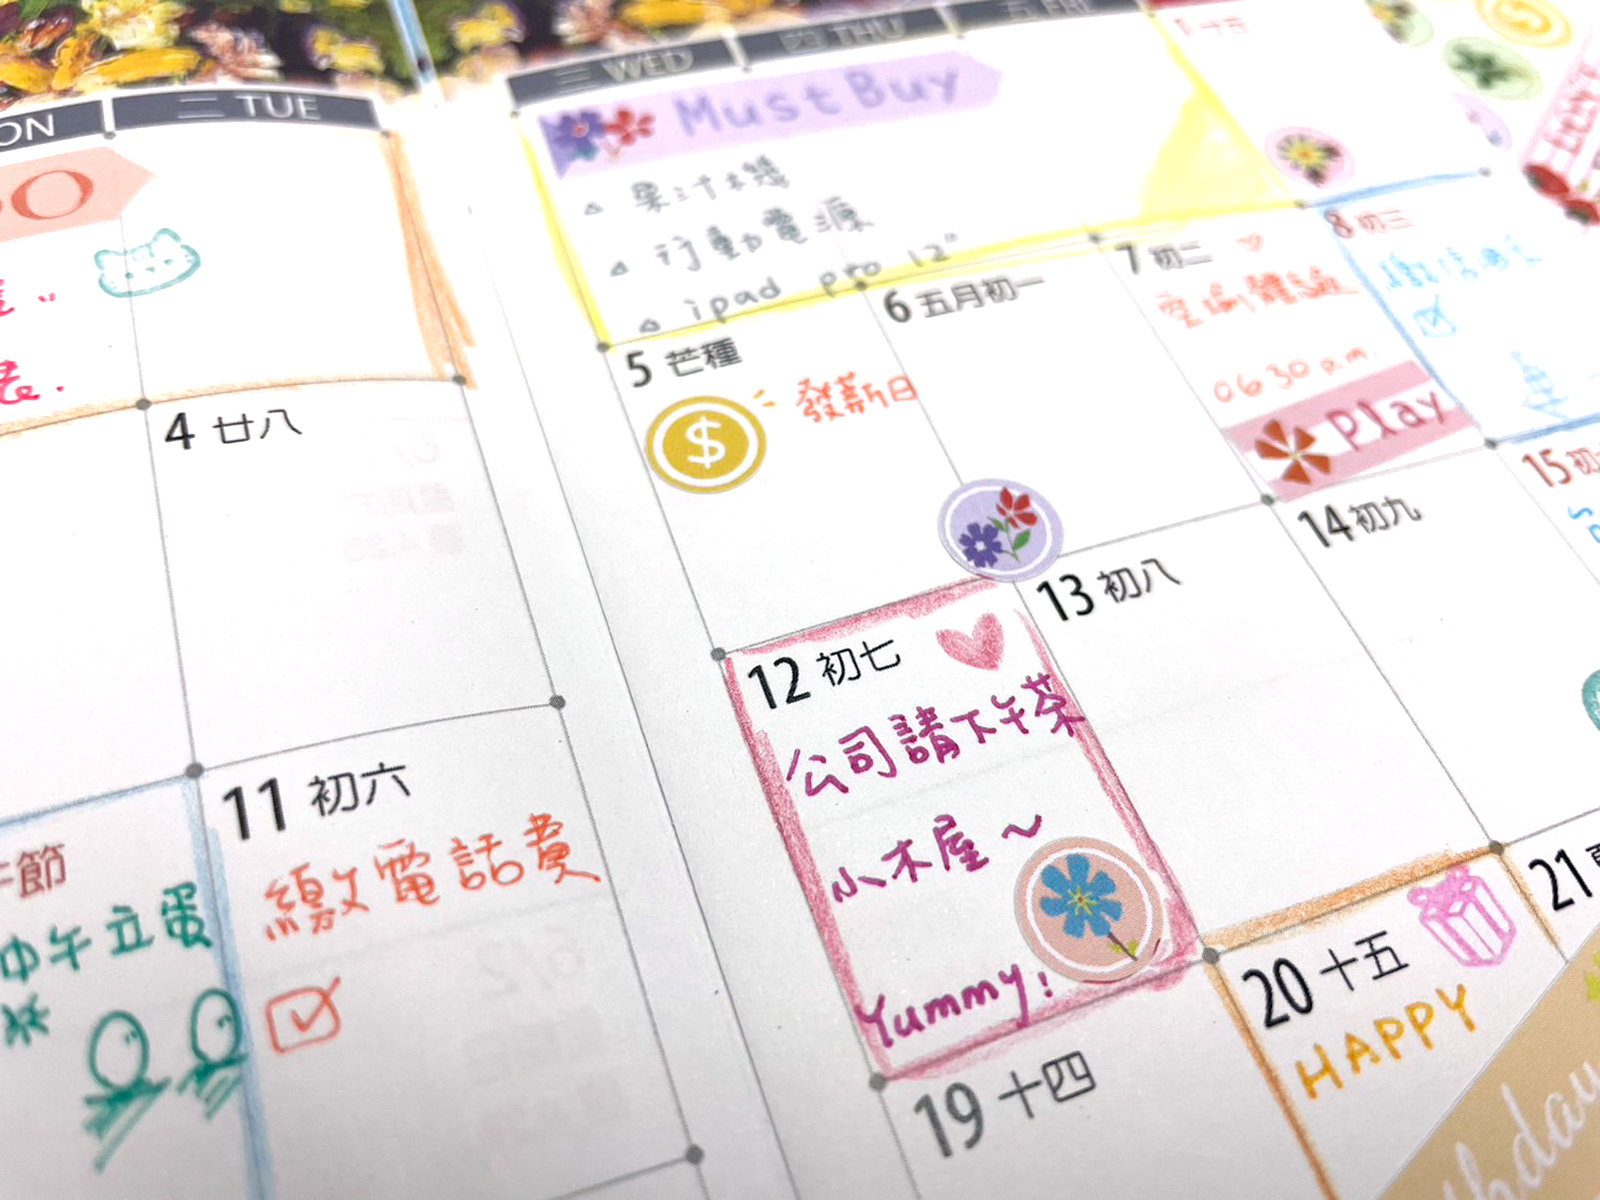 二 TUE
三 WED
四 THU
五 FRI
Must Buy
△ 果汁機
△ 行動電源
△ ipad pro 12"
4 廿八
5 芒種
發薪日
$
6 五月初一
7 初二
06:30 p.m.
Play
8 初三
11 初六
繳電話費
午節
中午立蛋
12 初七
公司請下午茶
小木屋~
Yummy!
13 初八
14 初九
15
19 十四
20 十五
HAPPY
21